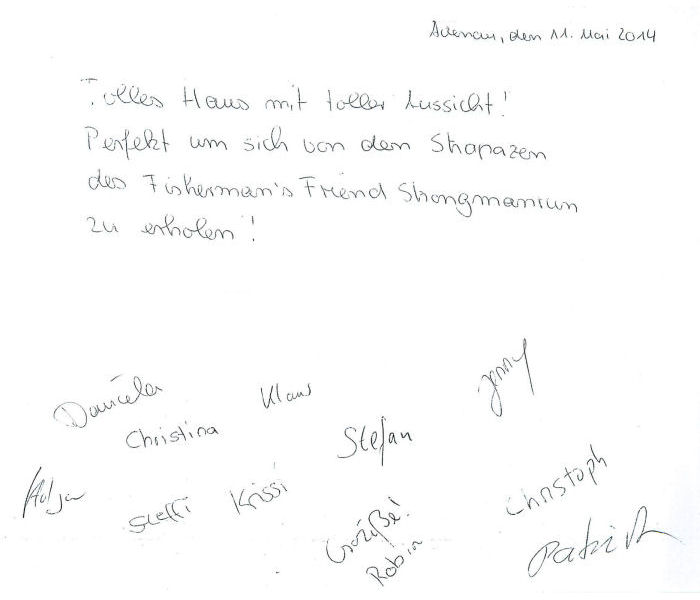 Adenau, den 11. Mai 2014
Tolles Haus mit toller Aussicht!
Perfekt um sich von den Strapazen
des Fisherman's Friend Strongmanrun
zu erholen!
Daniela
Klaus
Jenny
Christina
Stefan
Steffi
Krissi
Christoph
Grüße!
Robin
Patrick